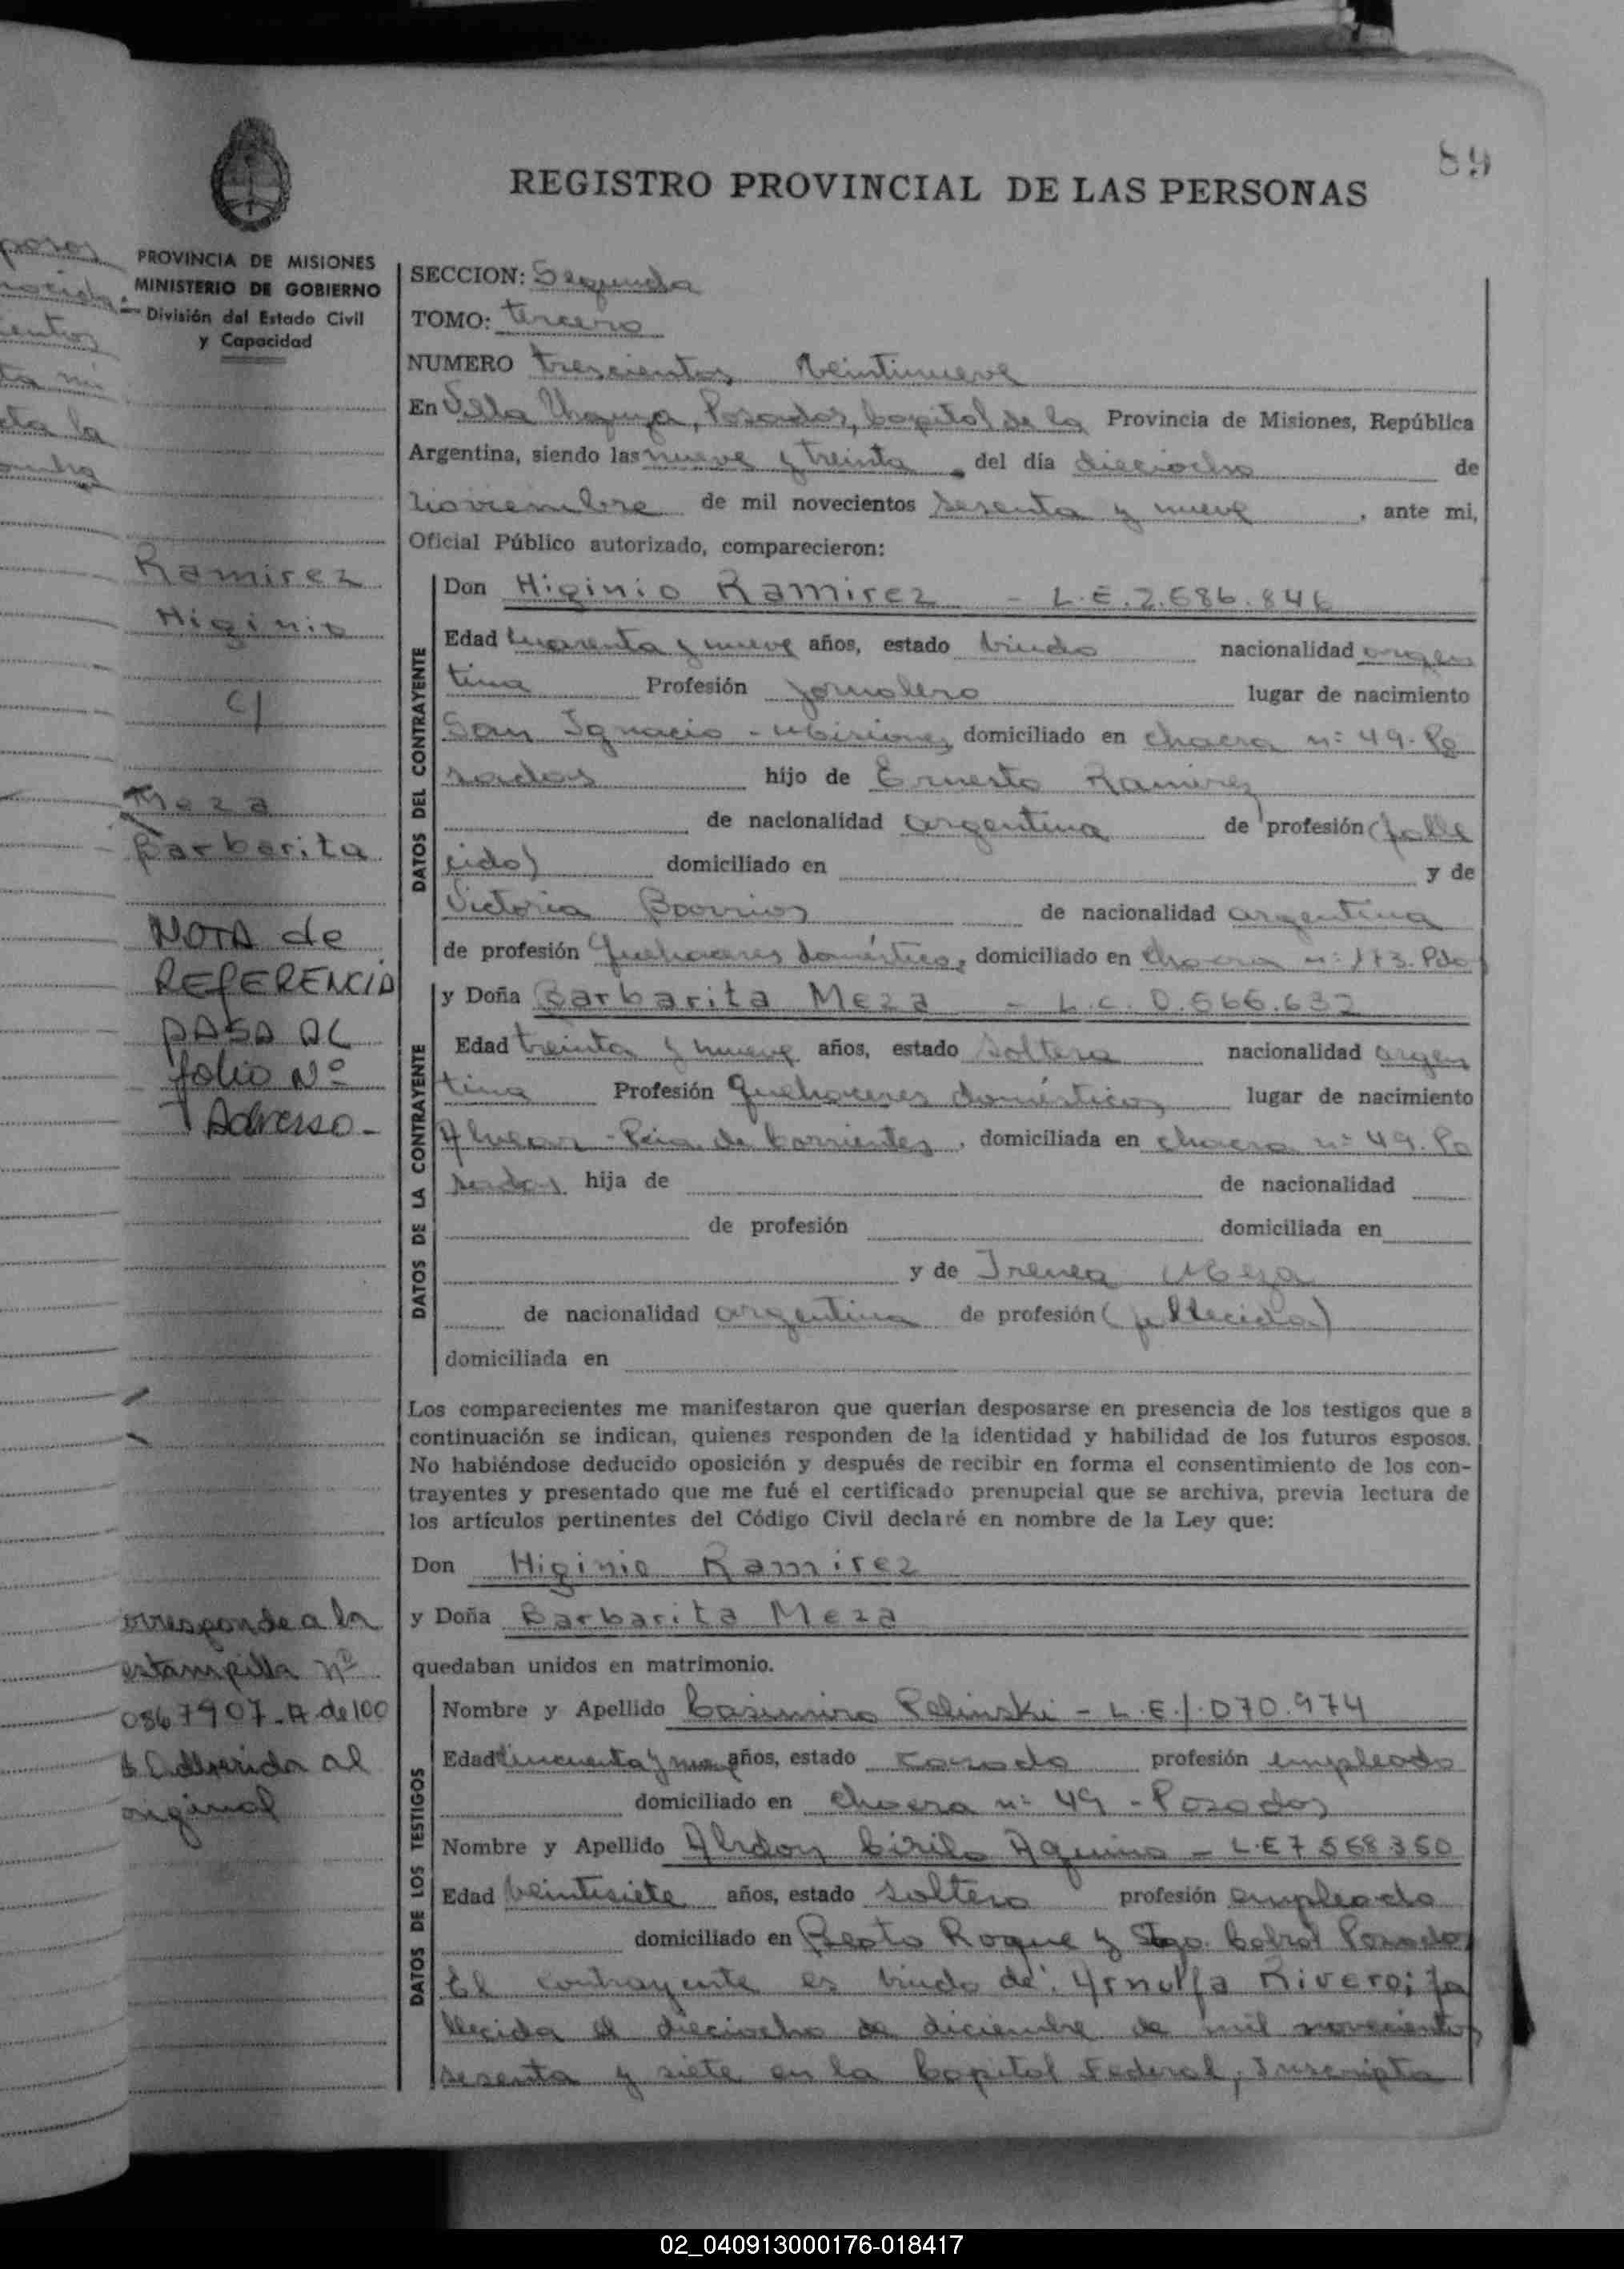 89
REGISTRO PROVINCIAL DE LAS PERSONAS
PROVINCIA DE MISIONES
MINISTERIO DE GOBIERNO
División del Estado Civil
y Capacidad
Ramirez
Higinio
c/
Meza
Barbarita
NOTA de
REFERENCIA
PASA AL
folio Nº
1 Adverso-
orresponde a la
estampilla nº
0867907-A de 100
$ Adherida al
original
SECCION: Segunda
TOMO: tercero
NUMERO trescientos veintinueve
En Villa Urquiza, Posadas, Capital de la Provincia de Misiones, República
Argentina, siendo las nueve y treinta del día dieciocho de
noviembre de mil novecientos sesenta y nueve, ante mi,
Oficial Público autorizado, comparecieron:
DATOS DEL CONTRAYENTE
Don Higinio Ramirez - L.E. 2.686.846
Edad cuarenta y nueve años, estado viudo nacionalidad argen
tina Profesión jornalero lugar de nacimiento
San Ignacio - Misiones, domiciliado en chacra nº 49. Po
sadas hijo de Ernesto Ramirez
de nacionalidad argentina de profesión (falle
cido) domiciliado en y de
Victoria Barrios de nacionalidad argentina
de profesión Quehaceres domésticos, domiciliado en chacra nº 173. Pdas
DATOS DE LA CONTRAYENTE
y Doña Barbarita Meza - L.C. 0.566.632
Edad treinta y nueve años, estado soltera nacionalidad argen
tina Profesión Quehaceres domésticos lugar de nacimiento
Alvear - Pcia de Corrientes, domiciliada en chacra nº 49. Po
sadas hija de de nacionalidad
de profesión domiciliada en
y de Irenea Meza
de nacionalidad argentina de profesión (fallecida)
domiciliada en
Los comparecientes me manifestaron que querían desposarse en presencia de los testigos que a
continuación se indican, quienes responden de la identidad y habilidad de los futuros esposos.
No habiéndose deducido oposición y después de recibir en forma el consentimiento de los con-
trayentes y presentado que me fué el certificado prenupcial que se archiva, previa lectura de
los artículos pertinentes del Código Civil declaré en nombre de la Ley que:
Don Higinio Ramirez
y Doña Barbarita Meza
quedaban unidos en matrimonio.
DATOS DE LOS TESTIGOS
Nombre y Apellido Casimiro Pelinski - L.E. 1.070.974
Edad cincuenta y años, estado casado profesión empleado
domiciliado en chacra nº 49 - Posadas
Nombre y Apellido Cirilo Aquino - L.E 7.568.350
Edad veintisiete años, estado soltero profesión empleado
domiciliado en Beato Roque y Sgo. Cabral Posadas
El contrayente es viudo de: Arnulfa Rivero; fa
llecida el dieciocho de diciembre de mil novecientos
sesenta y siete en la Capital Federal, Inscripta
02_040913000176-018417